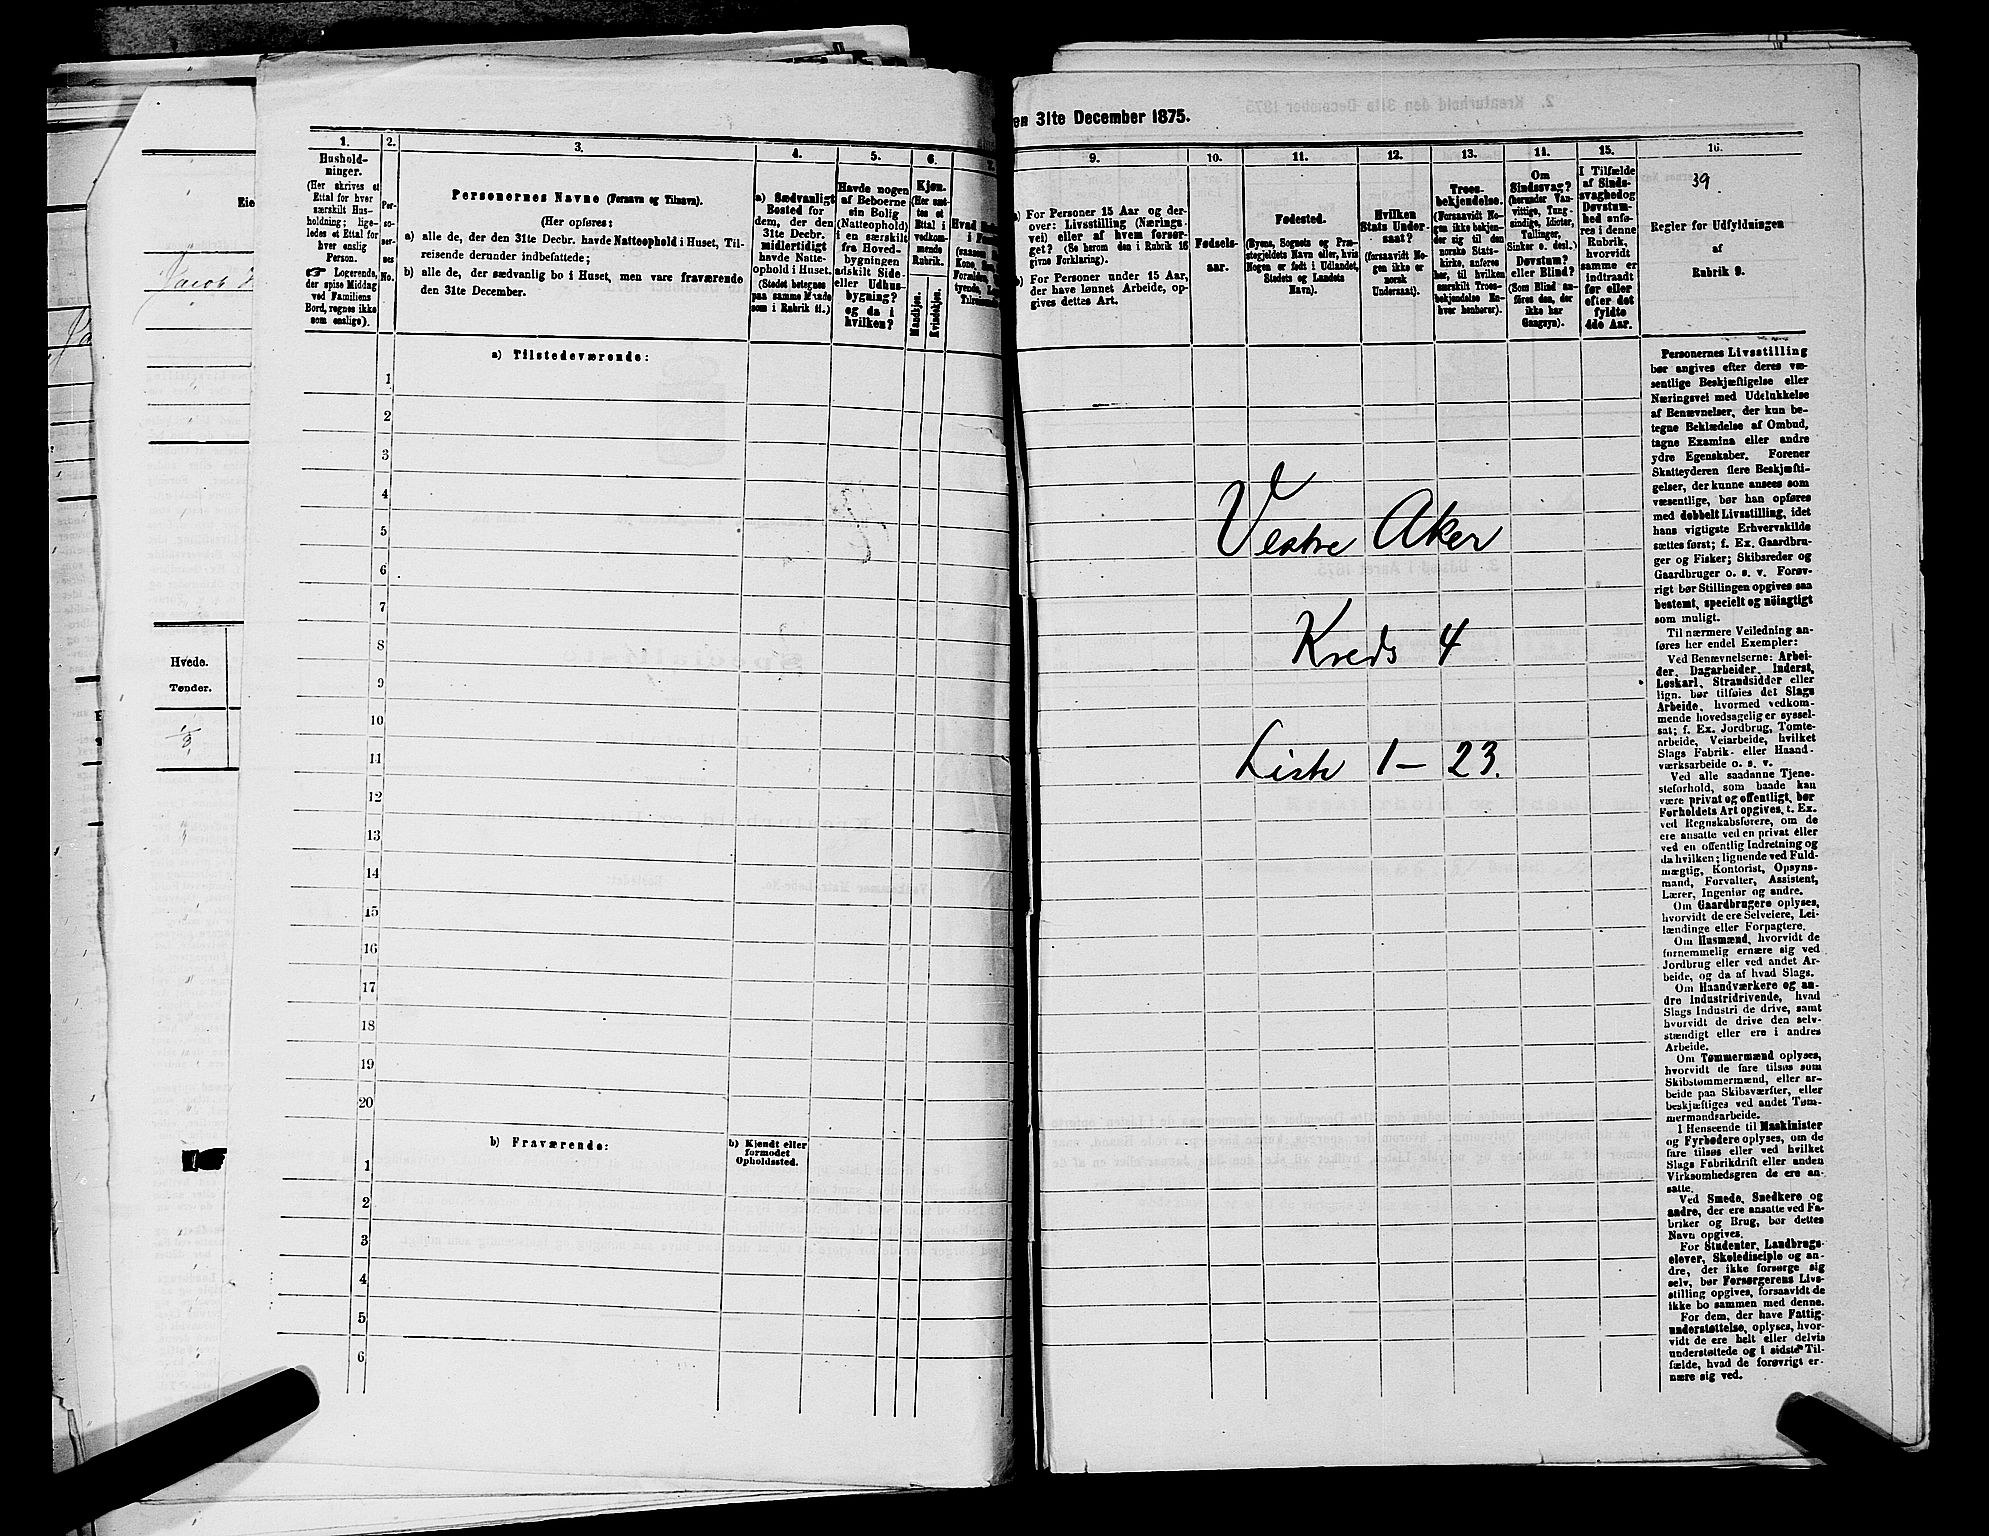 en 31te December 1875.
1.
Hushold-
ninger.
(Her skrives et
Ettal for hver
særskilt Hus-
holdning; lige-
ledes et Ettal for
hver enslig
Person.
☛ Logerende,
der spise Middag
ved Familiens
Bord, regnes ikke
som enslige).
2.
Per-
so-
ner-
nes
No.
3.
Personernes Navne (Fornavn og Tilnavn).
(Her opføres:
a) alle de, der den 31te Decbr. havde Natteophold i Huset, Til-
reisende derunder indbefattede;
b) alle de, der sædvanlig bo i Huset, men vare fraværende
den 31te December.
4.
a) Sædvanligt
Bosted for
dem, der den
31te Decbr.
midlertidigt
havde Natte-
ophold i Huset.
(Stedet betegnes
paa samme Maade
som i Rubrik 11.)
5.
Havde nogen
af Beboerne
sin Bolig
(Natteophold)
i en særskilt
fra Hoved-
bygningen
adskilt Side-
eller Udhus-
bygning?
og da i
hvilken?
6.
Kjøn.
(Her sæt-
tes et
Ettal i
vedkom-
mende
Rubrik.
Mandkjøn.
Kvindekjøn.
9.
a) For Personer 15 Aar og der-
over: Livsstilling (Nærings-
vei) eller af hvem forsør-
get? (Se herom den i Rubrik 16
givne Forklaring).
b) For Personer under 15 Aar,
der have lønnet Arbeide, op-
gives dettes Art.
10.
Fødsels-
aar.
11.
Fødested.
(Byens, Sognets og Præ-
stegjeldets Navn eller, hvis
Nogen er født i Udlandet,
Stedets og Landets
Navn).
12.
Hvilken
Stats Under-
saat?
(forsaavidt No-
gen ikke er
norsk
Undersaat).
13.
Troes-
bekjendelse.
(Forsaavidt No-
gen ikke bekjen-
der sig til den
norske Stats-
kirke, anføres
her, til hvilken
særskilt Troes-
bekjendelse En-
hver henhører).
14.
Om
Sindssvag?
(herunder Van-
vittige, Tung-
sindige, Idioter,
Tullinger,
Sinker o. desl.)
Døvstum?
eller Blind?
(Som Blind an-
føres den, der
ikke har
Gangsyn).
15.
I Tilfælde
af Sinds-
svaghed og
Døvstum-
hed anfø-
res i denne
Rubrik,
hvorvidt
samme er
indtraadt
før eller
efter det
fyldte
4de Aar.
16.
39
Regler for Udfyldningen
af
Rubrik 9.
a) Tilstedeværende:
1
2
3
4
5
6
7
8
9
10
11
12
13
14
15
16
17
18
19
20
b) Fraværende:
b) Kjendt eller
formodet
Opholdssted.
1
2
3
4
5
6
Vestre Aker
Kreds 4
Liste 1 – 23.
Personernes Livsstilling
bør angives efter deres væ-
sentlige Beskjæftigelse eller
Næringsvei med Udelukkelse
af Benævnelser, der kun be-
tegne Beklædelse af Ombud,
tagne Examina eller andre
ydre Egenskaber. Forener
Skatteyderen flere Beskjæfti-
gelser, der kunne ansees som
væsentlige, bør han opføres
med dobbelt Livsstilling, idet
hans vigtigste Erhvervskilde
sættes først; f. Ex. Gaardbru-
ger og Fisker; Skibsreder og
Gaardbruger o. s. v. Forøv-
rigt bør Stillingen opgives saa
bestemt, specielt og nöiagtigt
som muligt.
Til nærmere Veiledning an-
føres her endel Exempler:
Ved Benævnelserne: Arbei-
der, Dagarbeider, Inderst,
Løskarl, Strandsidder eller
lign. bør tilføies det Slags
Arbeide, hvormed vedkom-
mende hovedsagelig er syssel-
sat; f. Ex. Jordbrug, Tomte-
arbeide, Veiarbeide, hvilket
Slags Fabrik- eller Haand-
værksarbeide o. s. v.
Ved alle saadanne Tjene-
steforhold, som baade kan
være privat og offentligt, bør
Forholdets Art opgives, t. Ex.
ved Regnskabsførere, om de
ere ansatte ved en privat eller
ved en offentlig Indretning og
da hvilken; lignende ved Fuld-
mægtig, Kontorist, Opsyns-
mand, Forvalter, Assistent,
Lærer, Ingeniør og andre.
Om Gaardbrugere oplyses,
hvorvidt de ere Selveiere, Lei-
lændinge eller Forpagtere.
Om Husmænd, hvorvidt de
fornemmelig ernære sig ved
Jordbrug eller ved andet Ar-
beide, og da af hvad Slags.
Om Haandværkere og an-
dre Industridrivende, hvad
Slags Industri de drive, samt
hvorvidt de drive den selv-
stændigt eller ere i andres
Arbeide.
Om Tømmermænd oplyses,
hvorvidt de fare tilsøs som
Skibstømmermænd, eller ar-
beide paa Skibsværfter, eller
beskjæftiges ved andet Tøm-
mermandsarbeide.
I Henseende til Maskinister
og Fyrbødere oplyses, om de
fare tilsøs eller ved hvilket
Slags Fabrikdrift eller anden
Virksomhedsgren de ere an-
satte.
Ved Smede, Snedkere og
andre, der ere ansatte ved Fa-
briker og Brug, bør dettes
Navn opgives.
For Studenter, Landbrugs-
elever, Skoledisciple og an-
dre, der ikke forsørge sig
selv, bør Forsørgerens Livs-
stilling opgives, forsaavidt de
ikke bo sammen med denne.
For dem, der have Fattig-
understøttelse, oplyses, hvor-
vidt de ere helt eller delvis
understøttede og i sidste Til-
fælde, hvad de forøvrigt er-
nære sig ved.
Hvede.
Tønder.